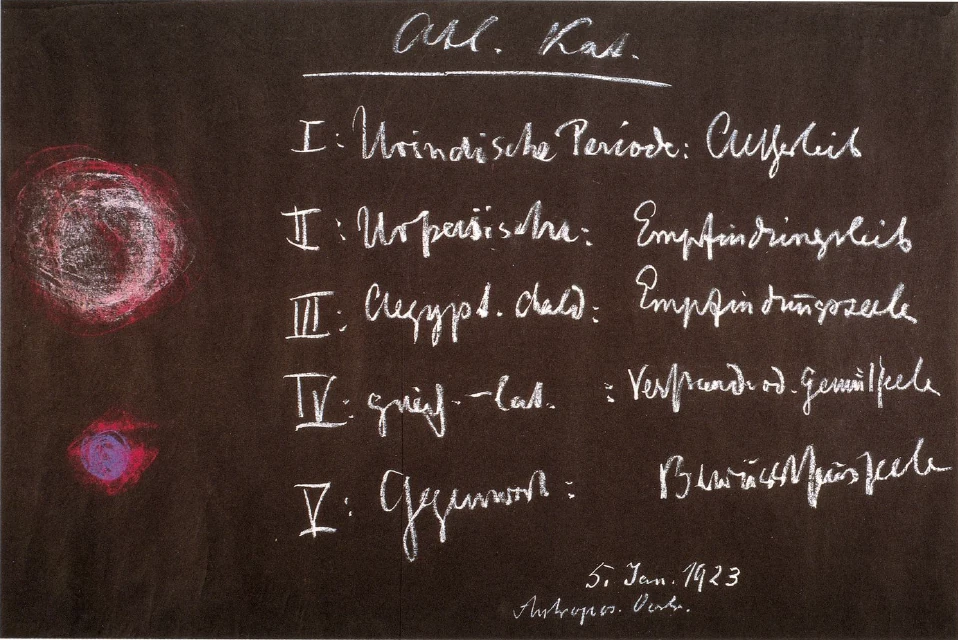 Atl. Kat.
I: Urindische Periode: Aetherleib
II: Urpersische: Empfindungsleib
III: Aegypt. chald: Empfindungsseele
IV: griech.-lat. : Verstands od. Gemütsseele
V: Gegenwart: Bewusstseinsseele
5. Jan. 1923
Anthropos.